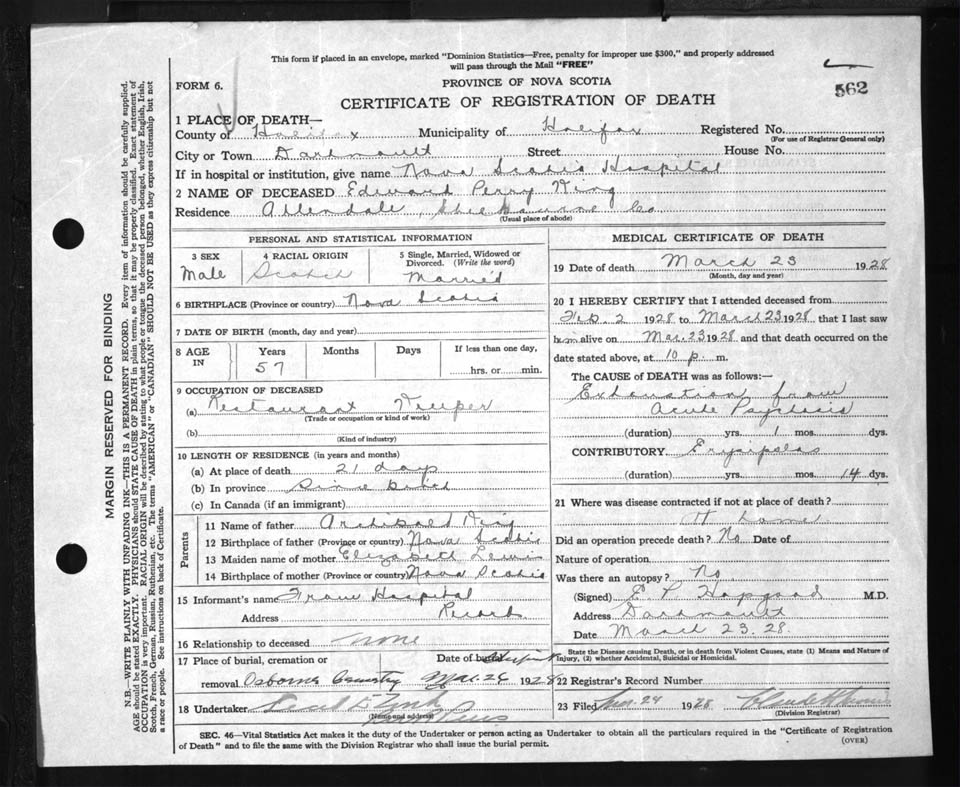 This form if placed in an envelope, marked "Dominion Statistics—Free, penalty for improper use $300," and properly addressed
will pass through the Mail "FREE"
FORM 6.
PROVINCE OF NOVA SCOTIA
562
CERTIFICATE OF REGISTRATION OF DEATH
1 PLACE OF DEATH—
County of Halifax Municipality of Halifax Registered No.
(For use of Registrar General only)
City or Town Dartmouth Street House No.
If in hospital or institution, give name Nova Scotia Hospital
2 NAME OF DECEASED Edward Perry King
Residence Allendale, Shelbourne Co
(Usual place of abode)
PERSONAL AND STATISTICAL INFORMATION
3 SEX
Male
4 RACIAL ORIGIN
Scotch
5 Single, Married, Widowed or
Divorced. (Write the word)
Married
6 BIRTHPLACE (Province or country) Nova Scotia
7 DATE OF BIRTH (month, day and year)
8 AGE
IN
Years
57
Months
Days
If less than one day,
hrs. or min.
9 OCCUPATION OF DECEASED
(a) Restaurant Keeper
(Trade or occupation or kind of work)
(b)
(Kind of industry)
10 LENGTH OF RESIDENCE (in years and months)
(a) At place of death 21 days
(b) In province Since birth
(c) In Canada (if an immigrant)
Parents
11 Name of father Archibald King
12 Birthplace of father (Province or country) Nova Scotia
13 Maiden name of mother Elizabeth Lewis
14 Birthplace of mother (Province or country) Nova Scotia
15 Informant's name From Hospital
Address Record
16 Relationship to deceased None
17 Place of burial, cremation or Date of burial
removal Osborne Cemetry Mar. 26 1928
18 Undertaker
(Name and address)
MEDICAL CERTIFICATE OF DEATH
19 Date of death March 23 1928
(Month, day and year)
20 I HEREBY CERTIFY that I attended deceased from
Feb. 2 1928 to March 23 1928, that I last saw
him alive on Mar. 23 1928 and that death occurred on the
date stated above, at 10 p. m.
The CAUSE of DEATH was as follows:—
Exhaustion from
Acute Psychosis
(duration) yrs. 1 mos. dys.
CONTRIBUTORY Erysipelas
(duration) yrs. mos. 14 dys.
21 Where was disease contracted if not at place of death?
At home
Did an operation precede death? No Date of
Nature of operation
Was there an autopsy? No
(Signed) E P Hopgood M.D.
Address Dartmouth
Date March 23. 28.
State the Disease causing Death, or in death from Violent Causes, state (1) Means and Nature of
Injury, (2) whether Accidental, Suicidal or Homicidal.
22 Registrar's Record Number
23 Filed Mar. 24 1928
(Division Registrar)
SEC. 46—Vital Statistics Act makes it the duty of the Undertaker or person acting as Undertaker to obtain all the particulars required in the "Certificate of Registration
of Death" and to file the same with the Division Registrar who shall issue the burial permit.
(OVER)
MARGIN RESERVED FOR BINDING
N.B.—WRITE PLAINLY WITH UNFADING INK—THIS IS A PERMANENT RECORD. Every item of information should be carefully supplied.
AGE should be stated EXACTLY. PHYSICIANS should STATE CAUSE OF DEATH in plain terms, so that it may be properly classified. Exact statement of
OCCUPATION is very important. RACIAL ORIGIN will be described by stating to what people or tongue the deceased person belonged, whether English, Irish,
Scotch, French, German, Russian, Ruthenian, etc. The terms "AMERICAN" or "CANADIAN" SHOULD NOT BE USED as they express citizenship but not
a race or people. See instructions on back of Certificate.